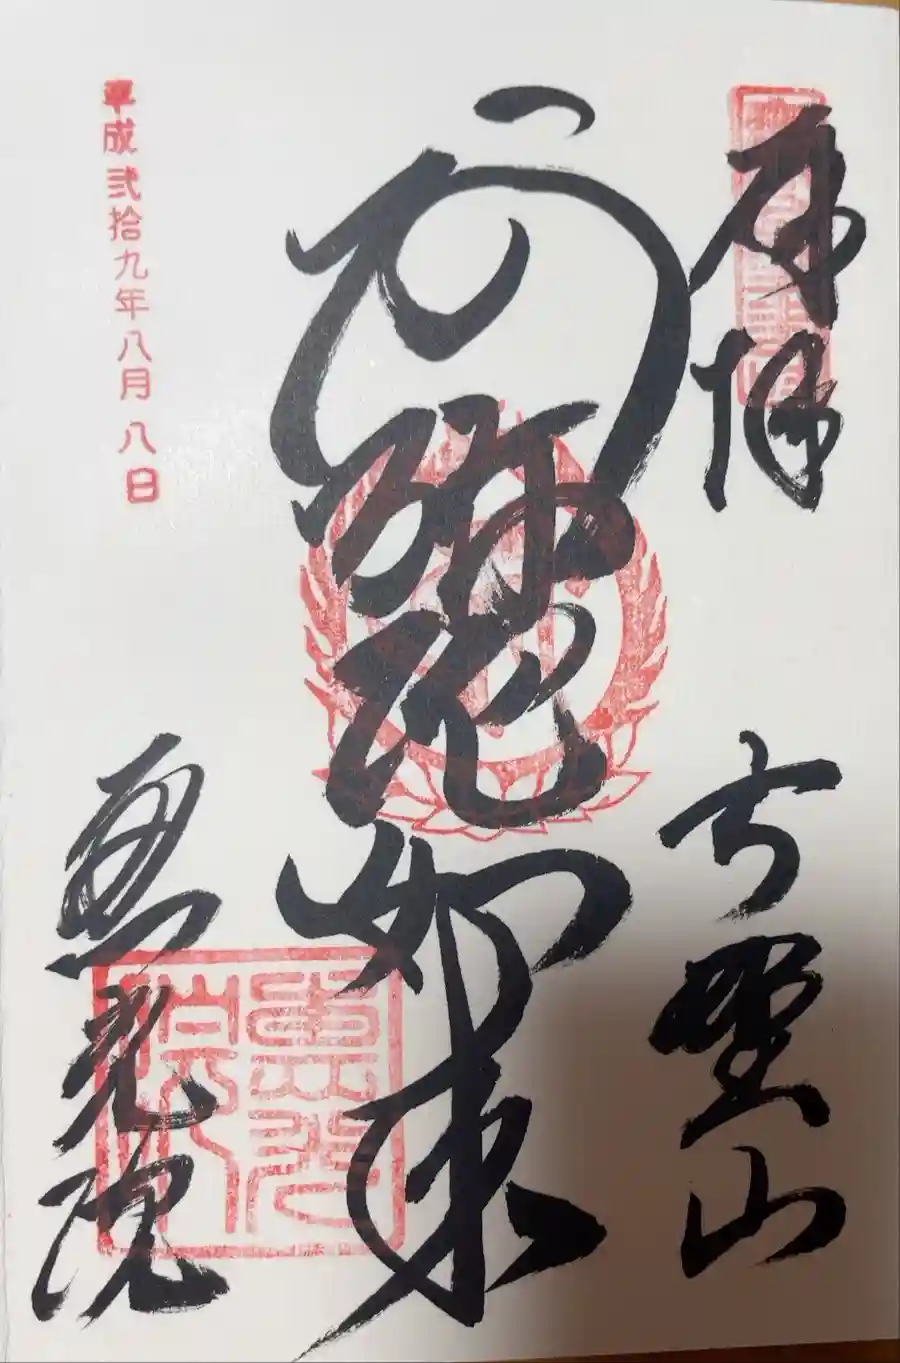 奉拝
高野山
阿弥陀如来
平成弐拾九年八月八日
恵光院